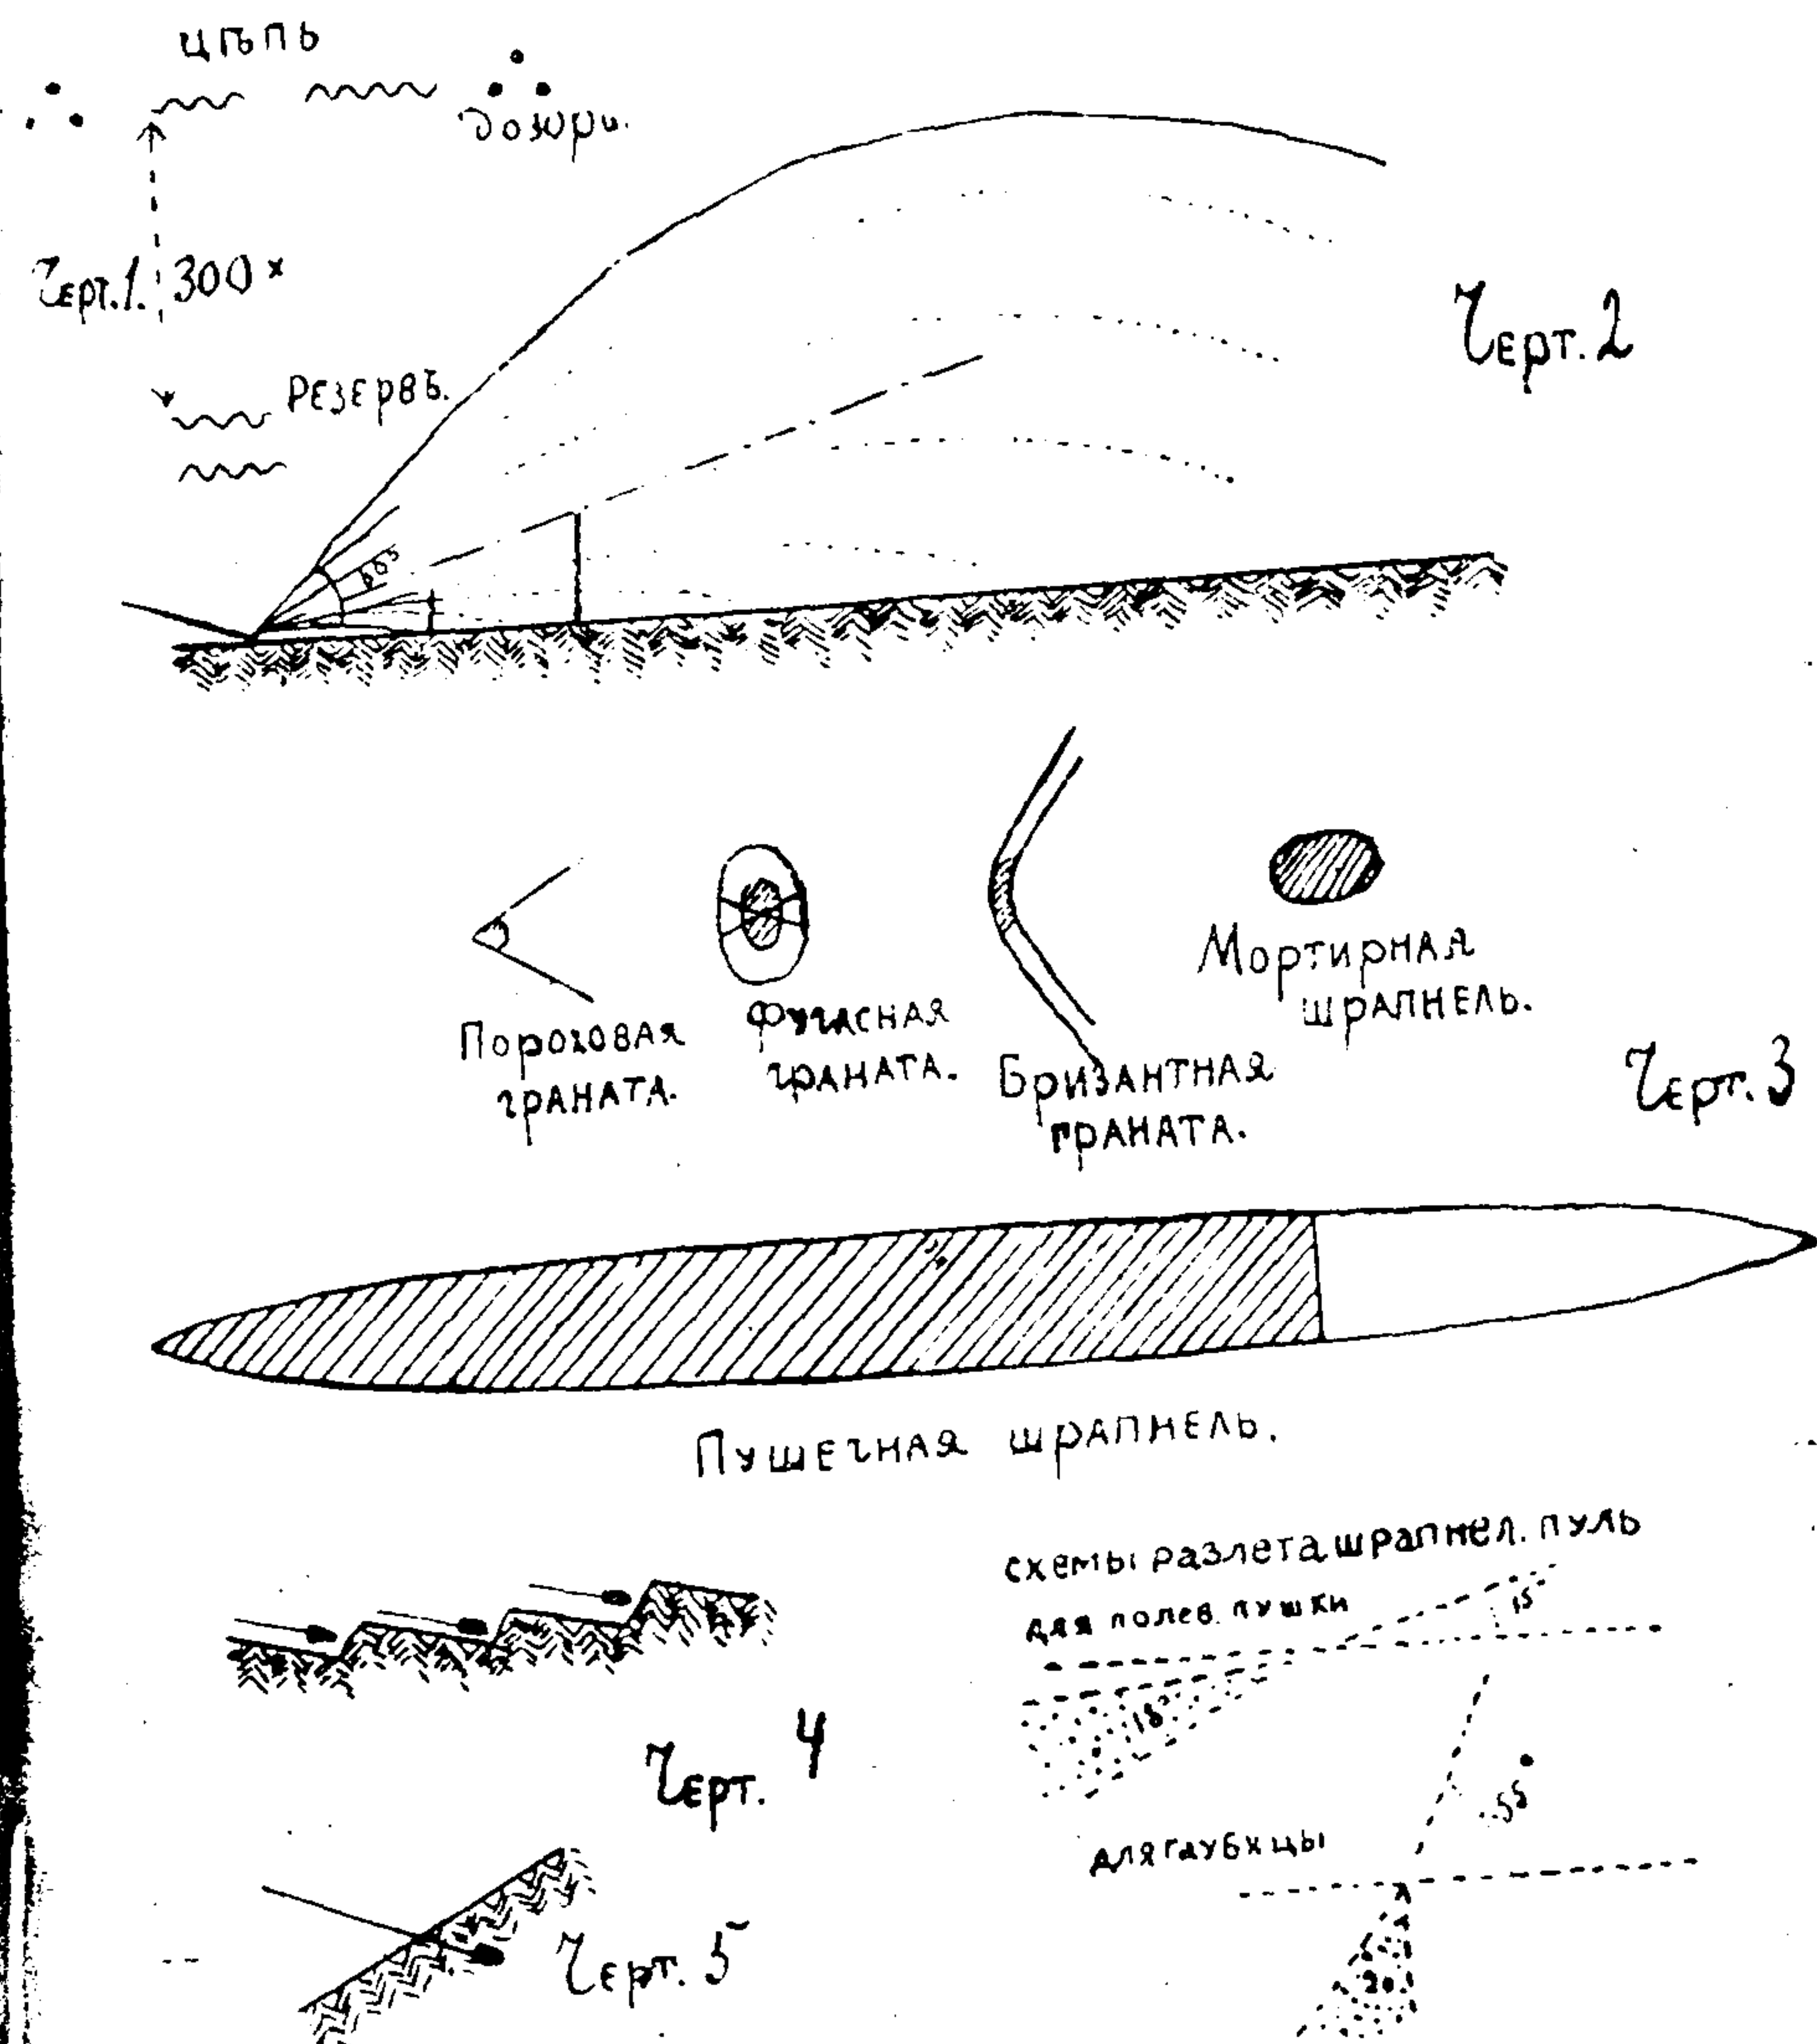 цѣпь
дозоры.
Черт. 1. 300 x
Резервъ.
Черт. 2
Пороховая
граната.
Фугасная
граната.
Бризантная
граната.
Мортирная
шрапнель.
Черт. 3
Пушечная шрапнель.
схемы разлета шрапнел. пуль
для полев. пушки
15°
18°
Черт. 4
55°
для гаубицы
20
Черт. 5